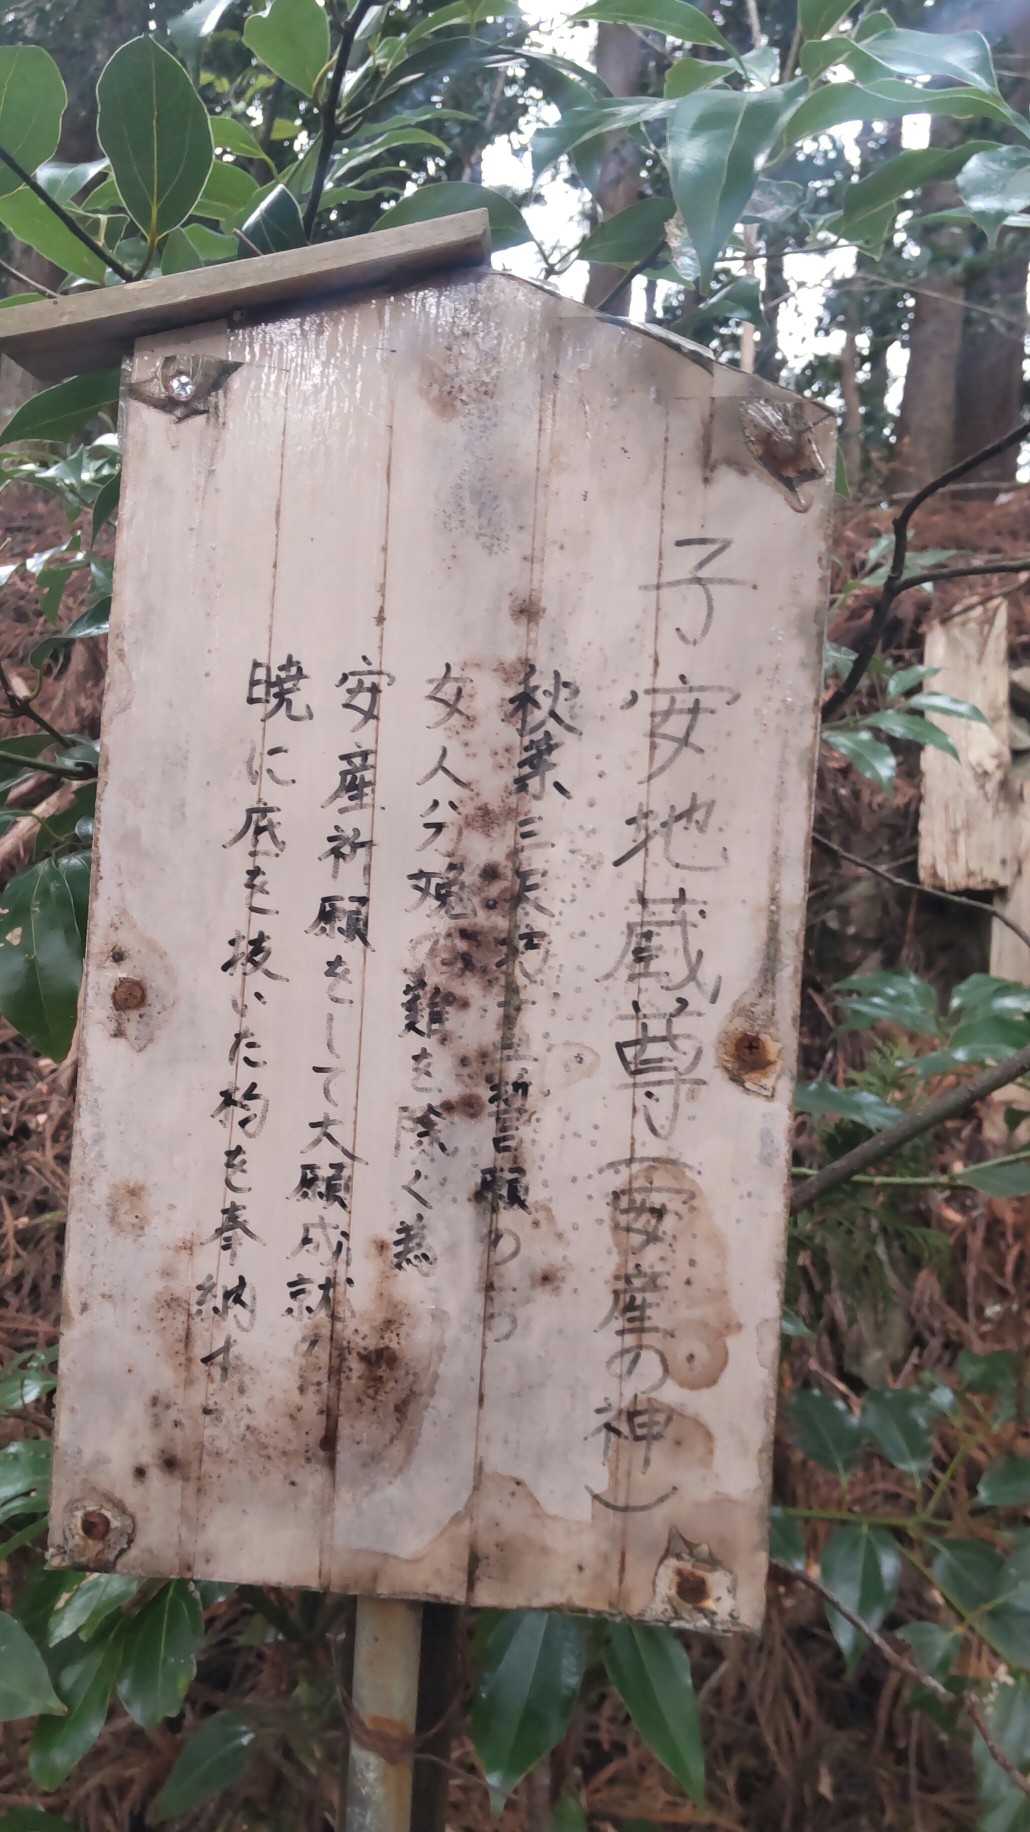 子安地蔵尊(安産の神)
秋葉三天 誓願のうち
女人分娩の難を除く為
安産祈願をして大願成就の
暁に底を抜いた杓を奉納す